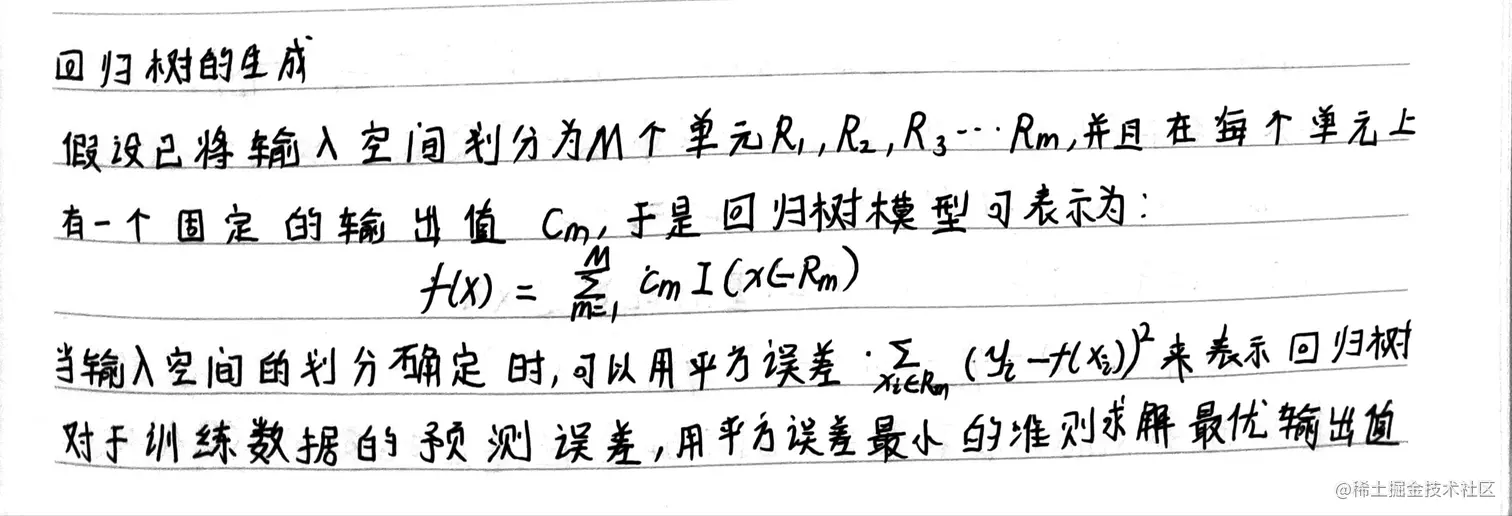 回归树的生成
假设已将输入空间划分为M个单元R₁,R₂,R₃…Rm,并且在每个单元上
有一个固定的输出值 Cm,于是回归树模型可表示为:
f(x) = ∑_{m=1}^{M} cm I(x∈Rm)
当输入空间的划分确定时,可以用平方误差 ∑_{xi∈Rm} (yi-f(xi))² 来表示回归树
对于训练数据的预测误差,用平方误差最小的准则求解最优输出值
@稀土掘金技术社区